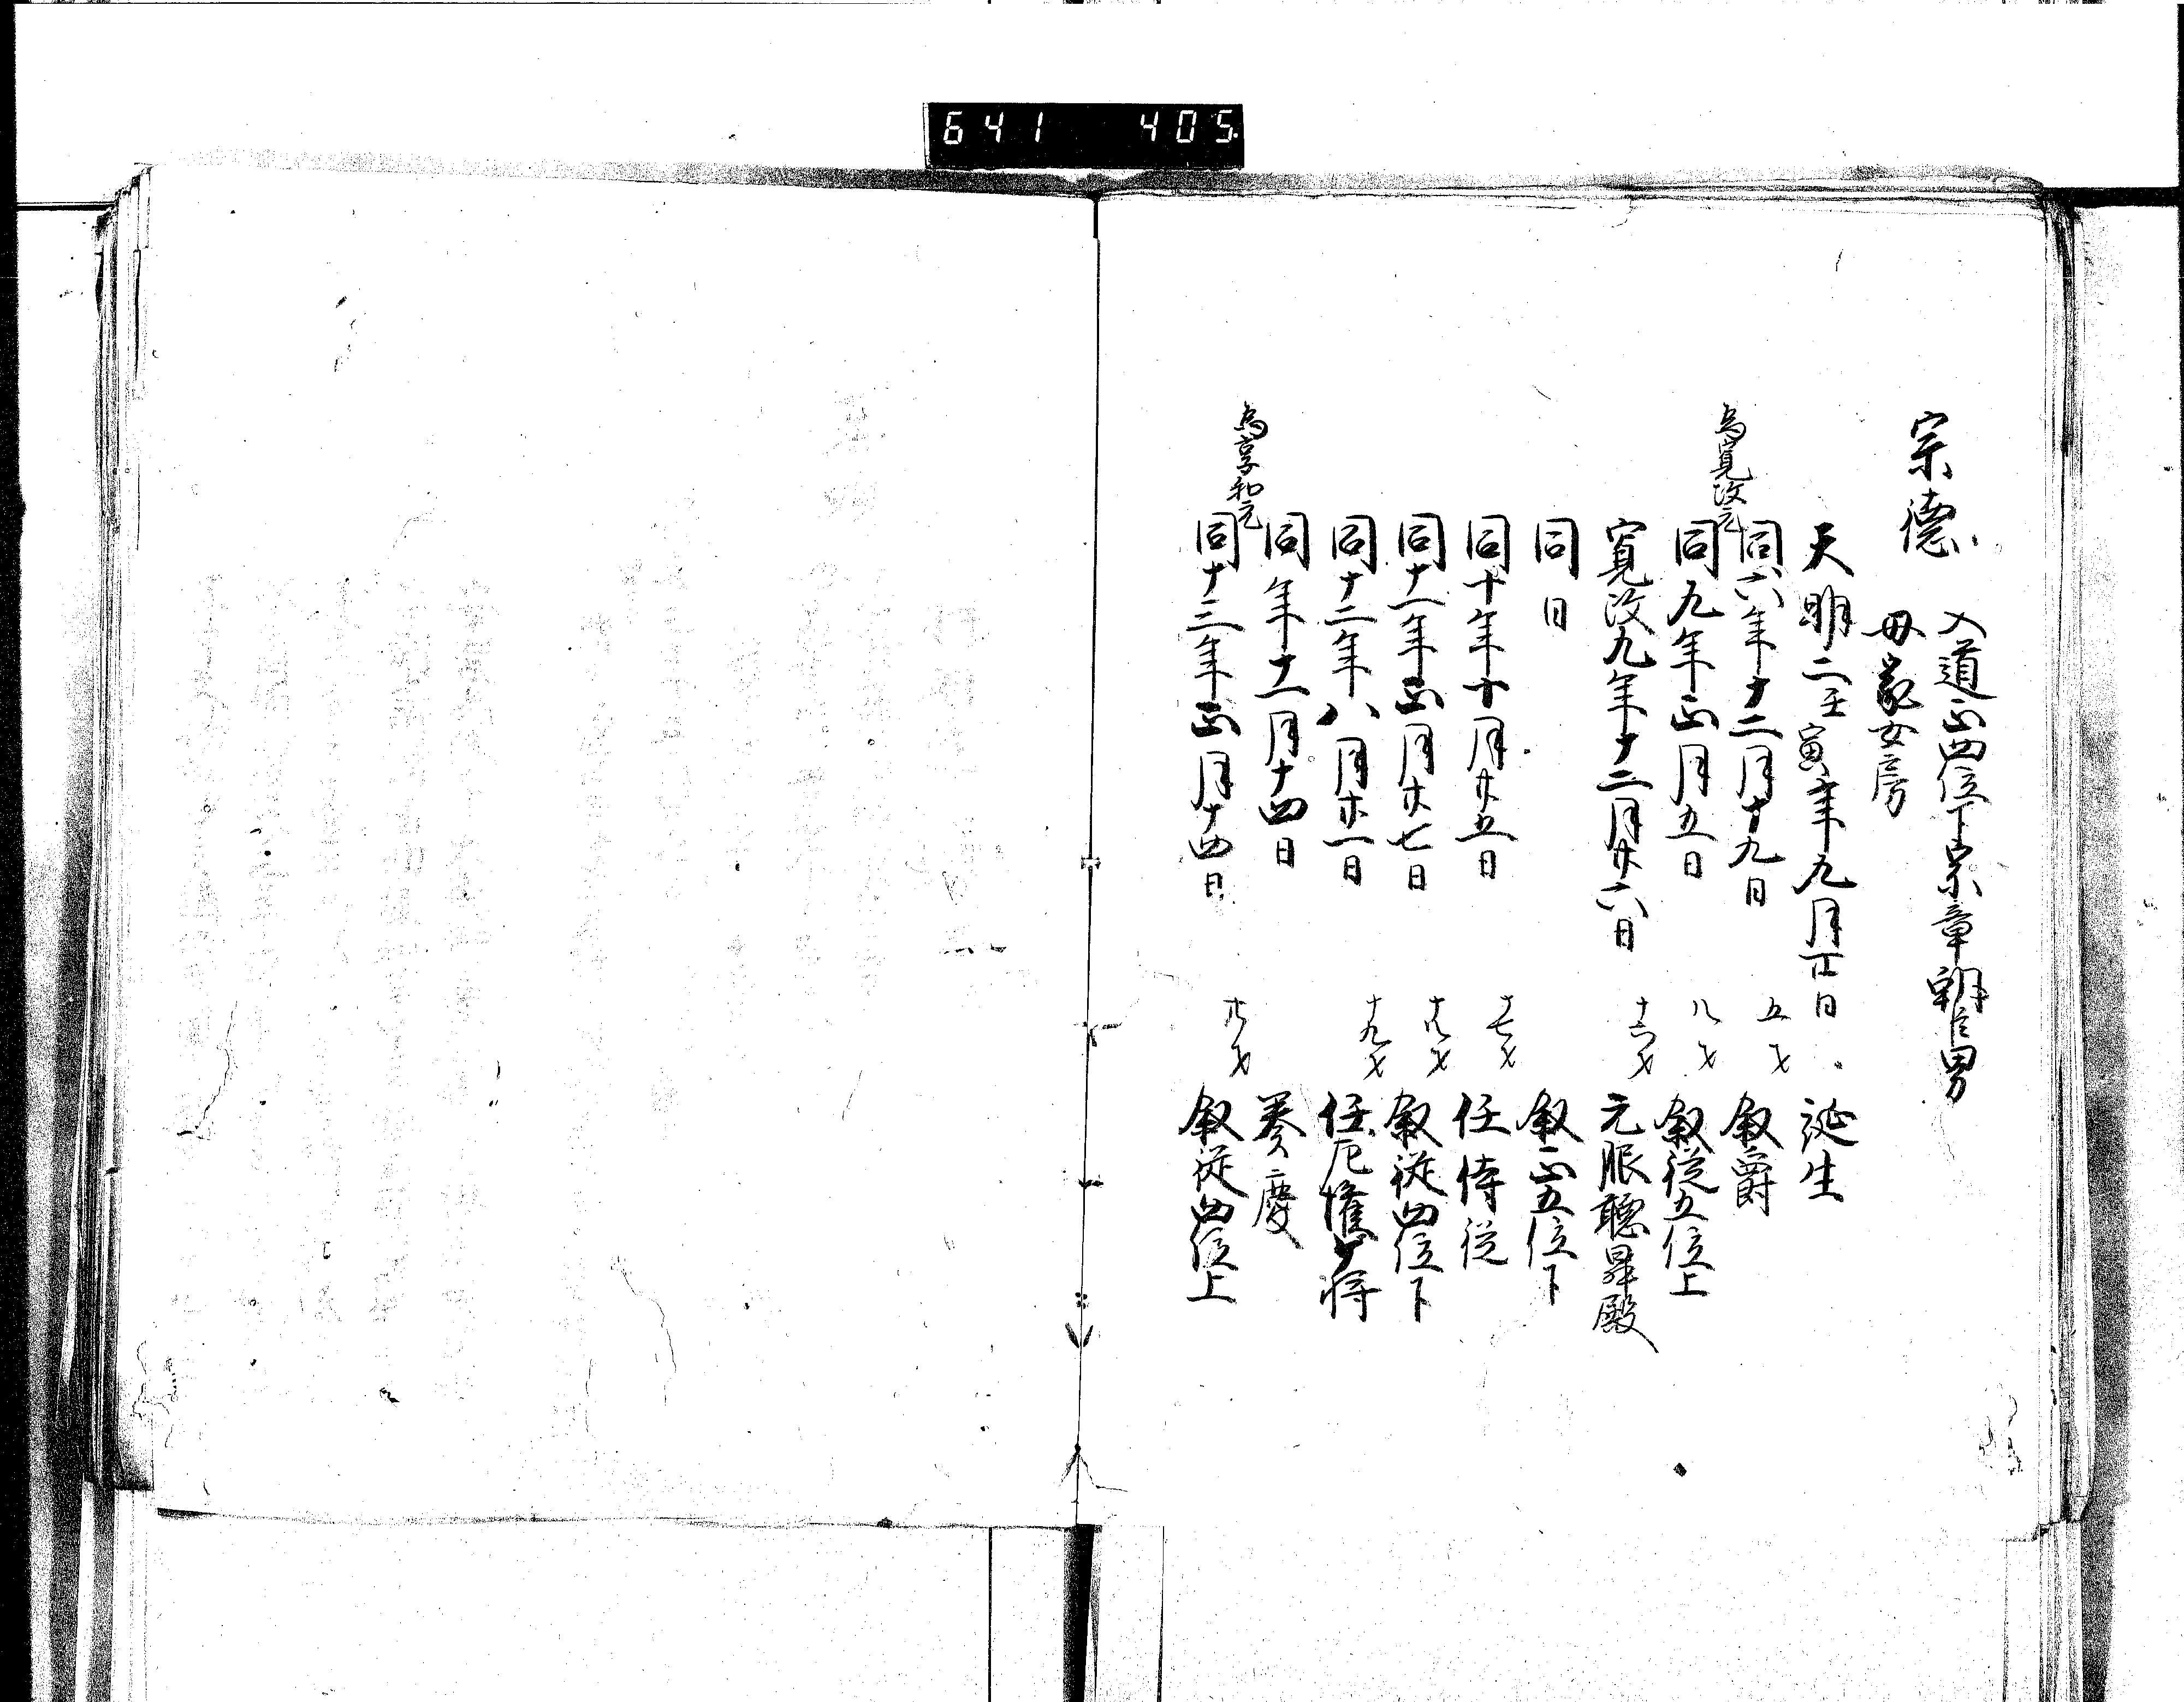 641 405
宗德
入道正四位下宗章朝臣男
母家女房
天明二壬寅年九月正日 誕生
同六年十二月十九日 五才 叙爵
為寛政元
同九年正月五日 八才 叙従五位上
寛政九年十二月廿六日 十六才 元服聴昇殿
同日 叙正五位下
同十年十月廿五日 十七才 任侍従
同十一年正月廿七日 十八才 叙従四位下
同十二年八月廿一日 十九才 任左権少将
同年十一月十四日 奏慶
為享和元
同十三年正月十四日 廿才 叙従四位上